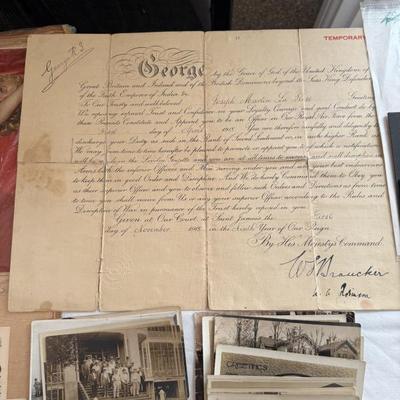 TEMPORARY
George R.I.
George by the Grace of God of the United Kingdom of
Great Britain and Ireland and of the British Dominions beyond the Seas King, Defender
of the Faith, Emperor of India &c.
To Our Trusty and well beloved Joseph Martin La Greeting
We reposing especial Trust and Confidence in your Loyalty Courage and good Conduct do by
these Presents Constitute and Appoint you to be an Officer in Our Royal Air Force from the
day of April 1918. You are therefore carefully and diligently to
discharge your Duty as such in the Rank of Second Lieutenant or in such higher Rank as
We may from time to time hereafter be pleased to promote or appoint you to of which a notification
will be made in the London Gazette and you are at all times to
Arms both the inferior Officers and Men serving under you and use your best endeavours
to keep them in good Order and Discipline. And We do hereby Command them to Obey you
as their superior Officer and you to observe and follow such Orders and Directions as from time
to time you shall receive from Us or any your superior Officer according to the Rules and
Discipline of War in pursuance of the Trust hereby reposed in you.
Given at Our Court, at Saint James's the First
day of November 1918 in the Year of Our Reign
By His Majesty's Command.
W S Brancker
Robinson
GREETINGS